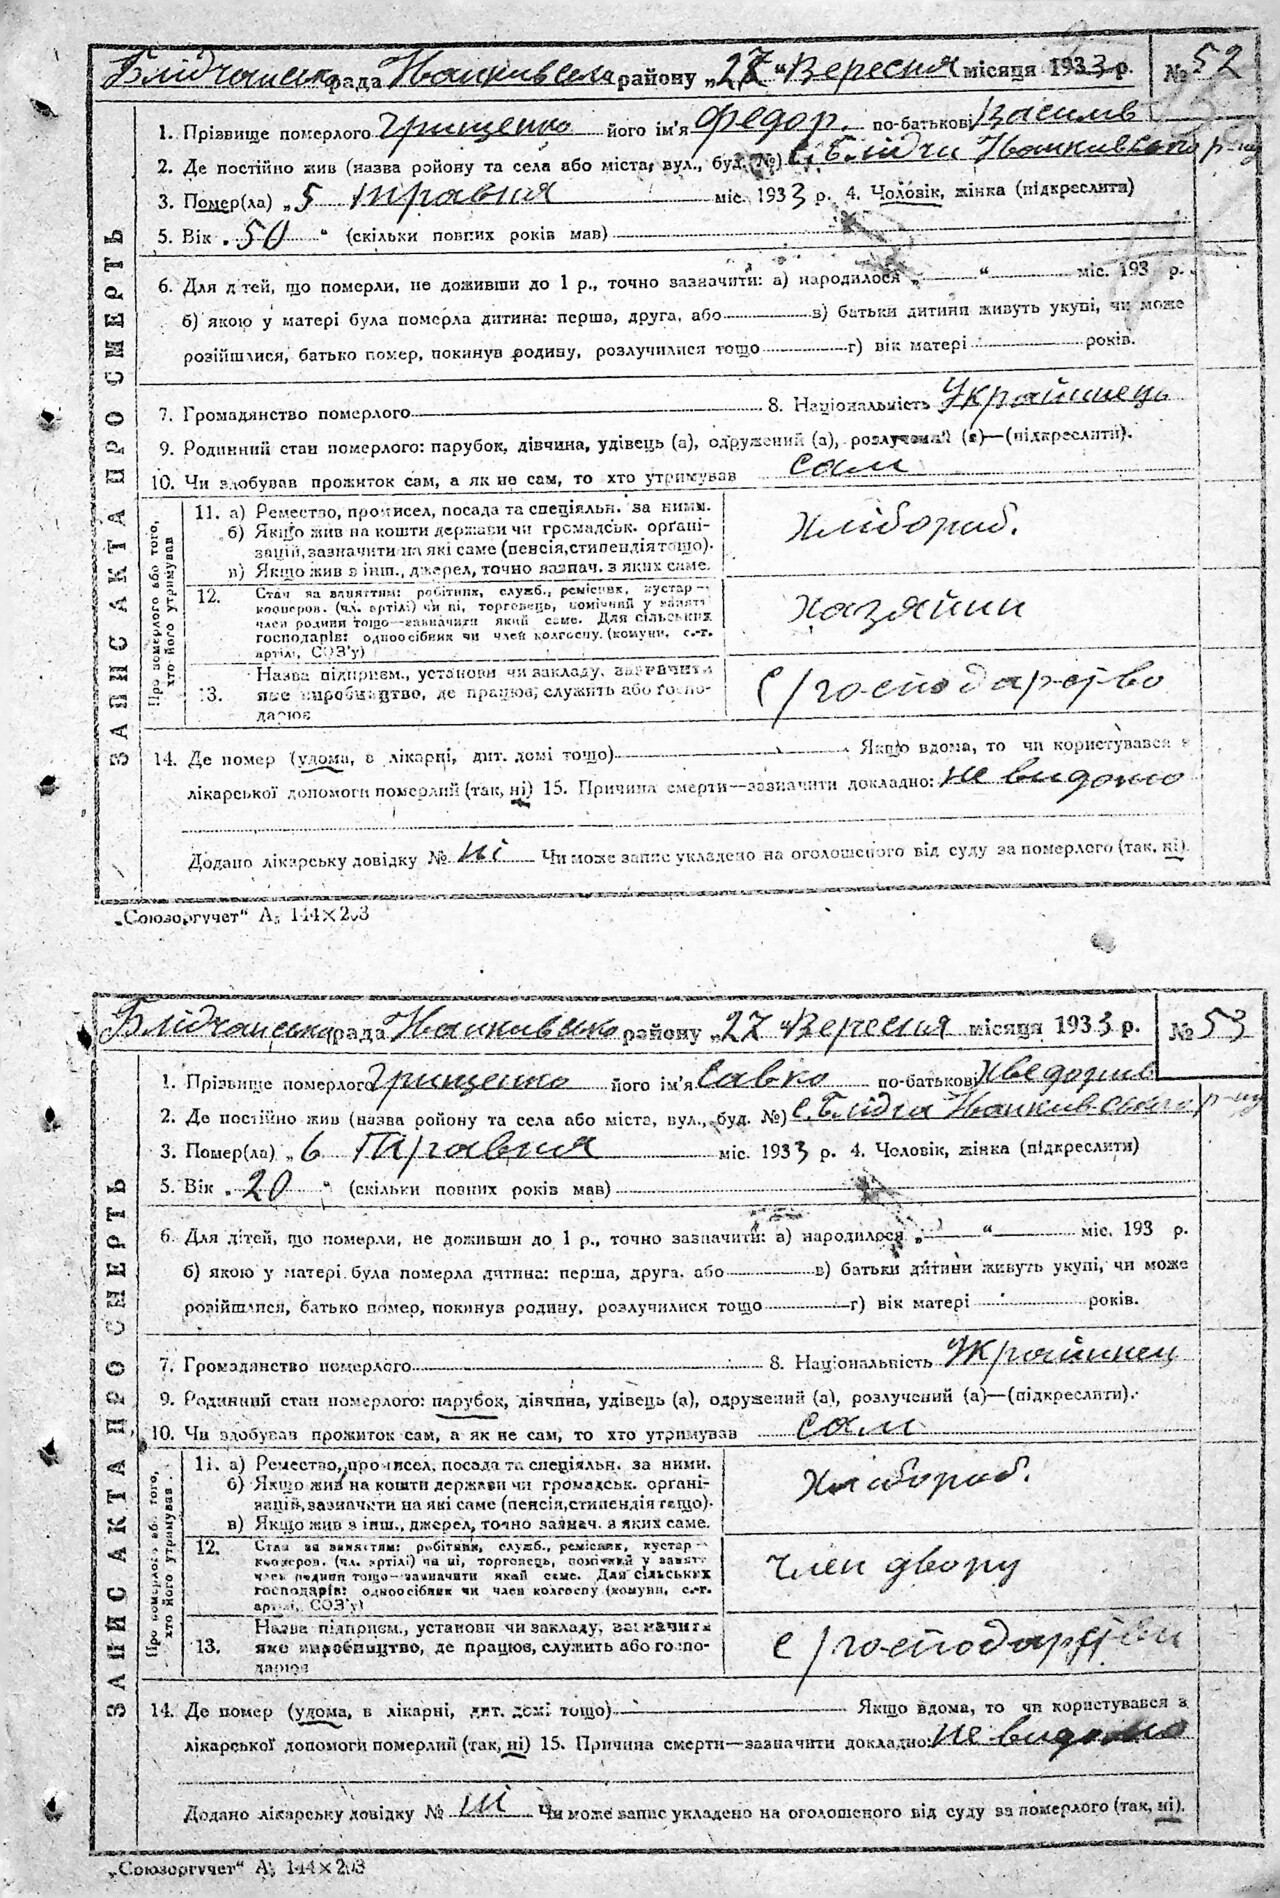 Блідчанська рада Іванківськ району „27“ Вересня місяця 1933 р. № 52
1. Прізвище померлого Грищенко його ім'я Федор. по-батькові Василів
2. Де постійно жив (назва району та села або міста, вул., буд. №) с. Блідчи Іванківського р-ну
3. Помер(ла) „5 травня міс. 1933 р. 4. Чоловік, жінка (підкреслити)
5. Вік „50“ (скільки повних років мав)
6. Для дітей, що померли, не доживши до 1 р., точно зазначити: а) народилося „ “ міс. 193 р.
б) якою у матері була померла дитина: перша, друга, або в) батьки дитини живуть укупі, чи може
розійшлися, батько помер, покинув родину, розлучилися тощо г) вік матері років.
7. Громадянство померлого 8. Національність Українець
9. Родинний стан померлого: парубок, дівчина, удівець (а), одружений (а), розлучений (а)—(підкреслити).
10. Чи здобував прожиток сам, а як не сам, то хто утримував сам
ЗАПИС АКТА ПРО СМЕРТЬ
Про померлого або того,
хто його утримував
11. а) Ремество, промисел, посада та спеціяльн. за ними.
б) Якщо жив на кошти держави чи громадськ. органі-
зацій, зазначити на які саме (пенсія, стипендія тощо).
в) Якщо жив з інш., джерел, точно зазнач. з яких саме.
Хлібороб.
12. Стан за заняттям: робітник, служб., ремісник, кустар—
кооперов. (чл. артілі) чи ні, торговець, помічний у занятт
член родини тощо—зазначити який саме. Для сільських
господарів: одноосібник чи член колгоспу (комуни, с.-г.
артілі, СОЗ'у)
Хазяйин
Назва підприєм., установи чи закладу, зазначити
13. яке виробництво, де працює, служить або госпо-
дарює
С/господарство
14. Де помер (удома, в лікарні, дит. домі тощо) Якщо вдома, то чи користувався з
лікарської допомоги померлий (так, ні) 15. Причина смерти—зазначити докладно: не видомо
Додано лікарську довідку № ні Чи може запис укладено на оголошеного від суду за померлого (так, ні).
„Союзоргучет“ А; 144×203
Блідчанська рада Іванківсько району „27“ Вересня місяця 1933 р. № 53
1. Прізвище померлого Грищенко його ім'я Савко по-батькові Хведорив
2. Де постійно жив (назва району та села або міста, вул., буд. №) с. Блідча Іванківського р-ну
3. Помер(ла) „6 Травня міс. 1933 р. 4. Чоловік, жінка (підкреслити)
5. Вік „20“ (скільки повних років мав)
6. Для дітей, що померли, не доживши до 1 р., точно зазначити: а) народилося „ “ міс. 193 р.
б) якою у матері була померла дитина: перша, друга, або в) батьки дитини живуть укупі, чи може
розійшлися, батько помер, покинув родину, розлучилися тощо г) вік матері років.
7. Громадянство померлого 8. Національність Українец
9. Родинний стан померлого: парубок, дівчина, удівець (а), одружений (а), розлучений (а)—(підкреслити).
10. Чи здобував прожиток сам, а як не сам, то хто утримував сам
ЗАПИС АКТА ПРО СМЕРТЬ
Про померлого аб. того,
хто його утримував
11. а) Ремество, промисел, посада та спеціяльн. за ними.
б) Якщо жив на кошти держави чи громадськ. органі-
зацій, зазначити на які саме (пенсія, стипендія тощо).
в) Якщо жив з інш., джерел, точно зазнач. з яких саме.
Хлібороб.
12. Стан за заняттям: робітник, служб., ремісник, кустар—
кооперов. (чл. артілі) чи ні, торговець, помічний у занятт
член родини тощо—зазначити який саме. Для сільських
господарів: одноосібник чи член колгоспу (комуни, с.-г.
артілі, СОЗ'у)
член двору
Назва підприєм., установи чи закладу, зазначити
13. яке виробництво, де працює, служить або госпо-
дарює
С/господарстви
14. Де помер (удома, в лікарні, дит. домі тощо) Якщо вдома, то чи користувався з
лікарської допомоги померлий (так, ні) 15. Причина смерти—зазначити докладно: не видомо
Додано лікарську довідку № ні Чи може запис укладено на оголошеного від суду за померлого (так, ні).
„Союзоргучет“ А; 144×203